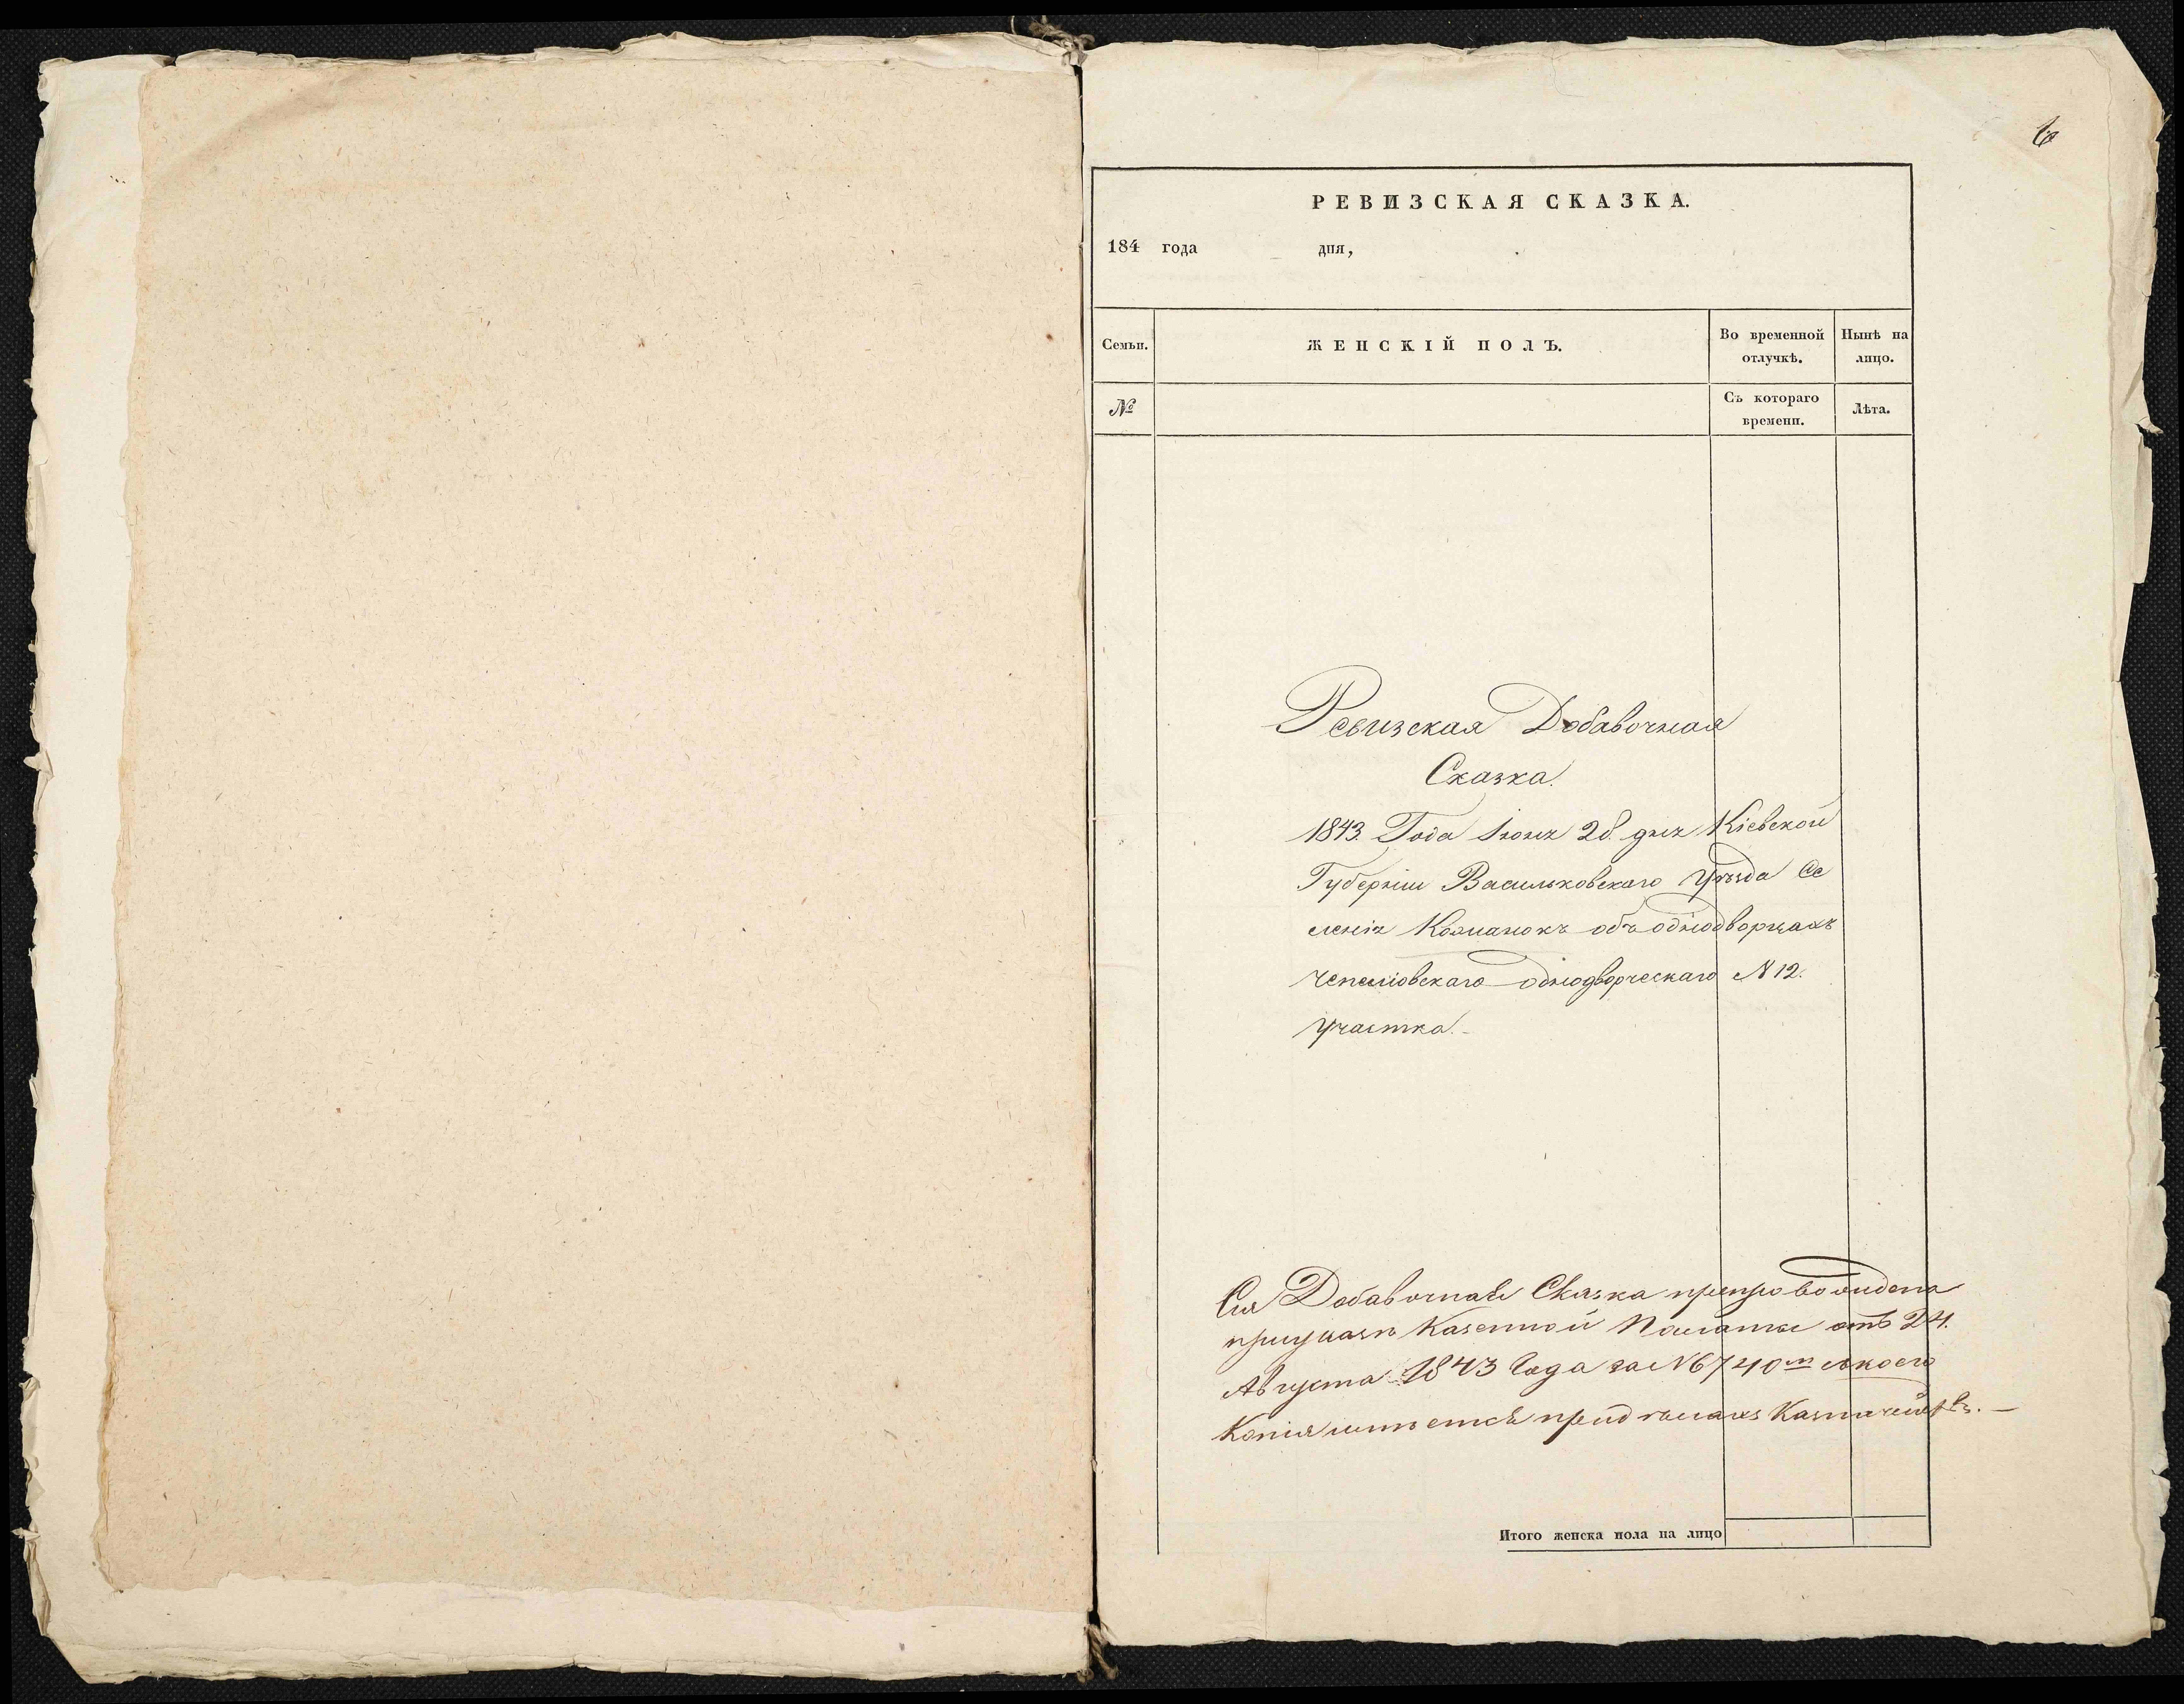 6
РЕВИЗСКАЯ СКАЗКА.
184 года дня,
Семьи.
ЖЕНСКІЙ ПОЛЪ.
Во временной
отлучкѣ.
Нынѣ на
лицо.
№
Съ котораго
времени.
Лѣта.
Ревизская Добавочная
Сказка.
1843. Года Іюня 28. дня Кіевской
Губерніи Васильковскаго Уѣзда Се
ленія объ однодворцахъ
однодворческаго N 12.
Участка.-
Сія Добавочная Сказка препровождена
при указѣ Казенной Палаты отъ 24.
Августа 1843 Года за N 6740м съ коего
Копія имѣется при дѣлахъ
Итого женска пола на лицо